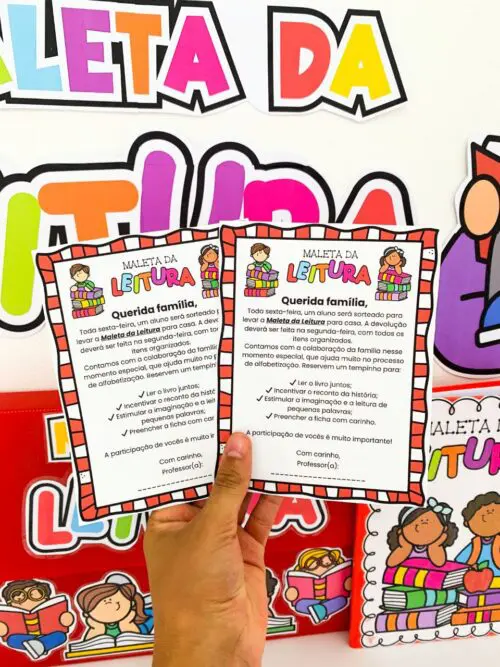 ALETA DA
EITURA
MALETA DA
LEITURA
Querida família,
Toda sexta-feira, um aluno será sorteado para
levar a Maleta da Leitura para casa. A devol
deverá ser feita na segunda-feira, com to
itens organizados.
Contamos com a colaboração da família
momento especial, que ajuda muito no p
de alfabetização. Reservem um tempinho
✓ Ler o livro juntos;
✓ Incentivar o reconto da históri
✓ Estimular a imaginação e a leit
pequenas palavras;
✓ Preencher a ficha com cari
A participação de vocês é muito
Com carinho,
Professor(a):
MALETA DA
LEITURA
Querida família,
Toda sexta-feira, um aluno será sorteado para
levar a Maleta da Leitura para casa. A devolução
deverá ser feita na segunda-feira, com todos os
itens organizados.
Contamos com a colaboração da família nesse
momento especial, que ajuda muito no processo
de alfabetização. Reservem um tempinho para:
✓ Ler o livro juntos;
✓ Incentivar o reconto da história;
✓ Estimular a imaginação e a leitura de
pequenas palavras;
✓ Preencher a ficha com carinho.
A participação de vocês é muito importante!
Com carinho,
Professor(a):
MALETA DA
EITURA